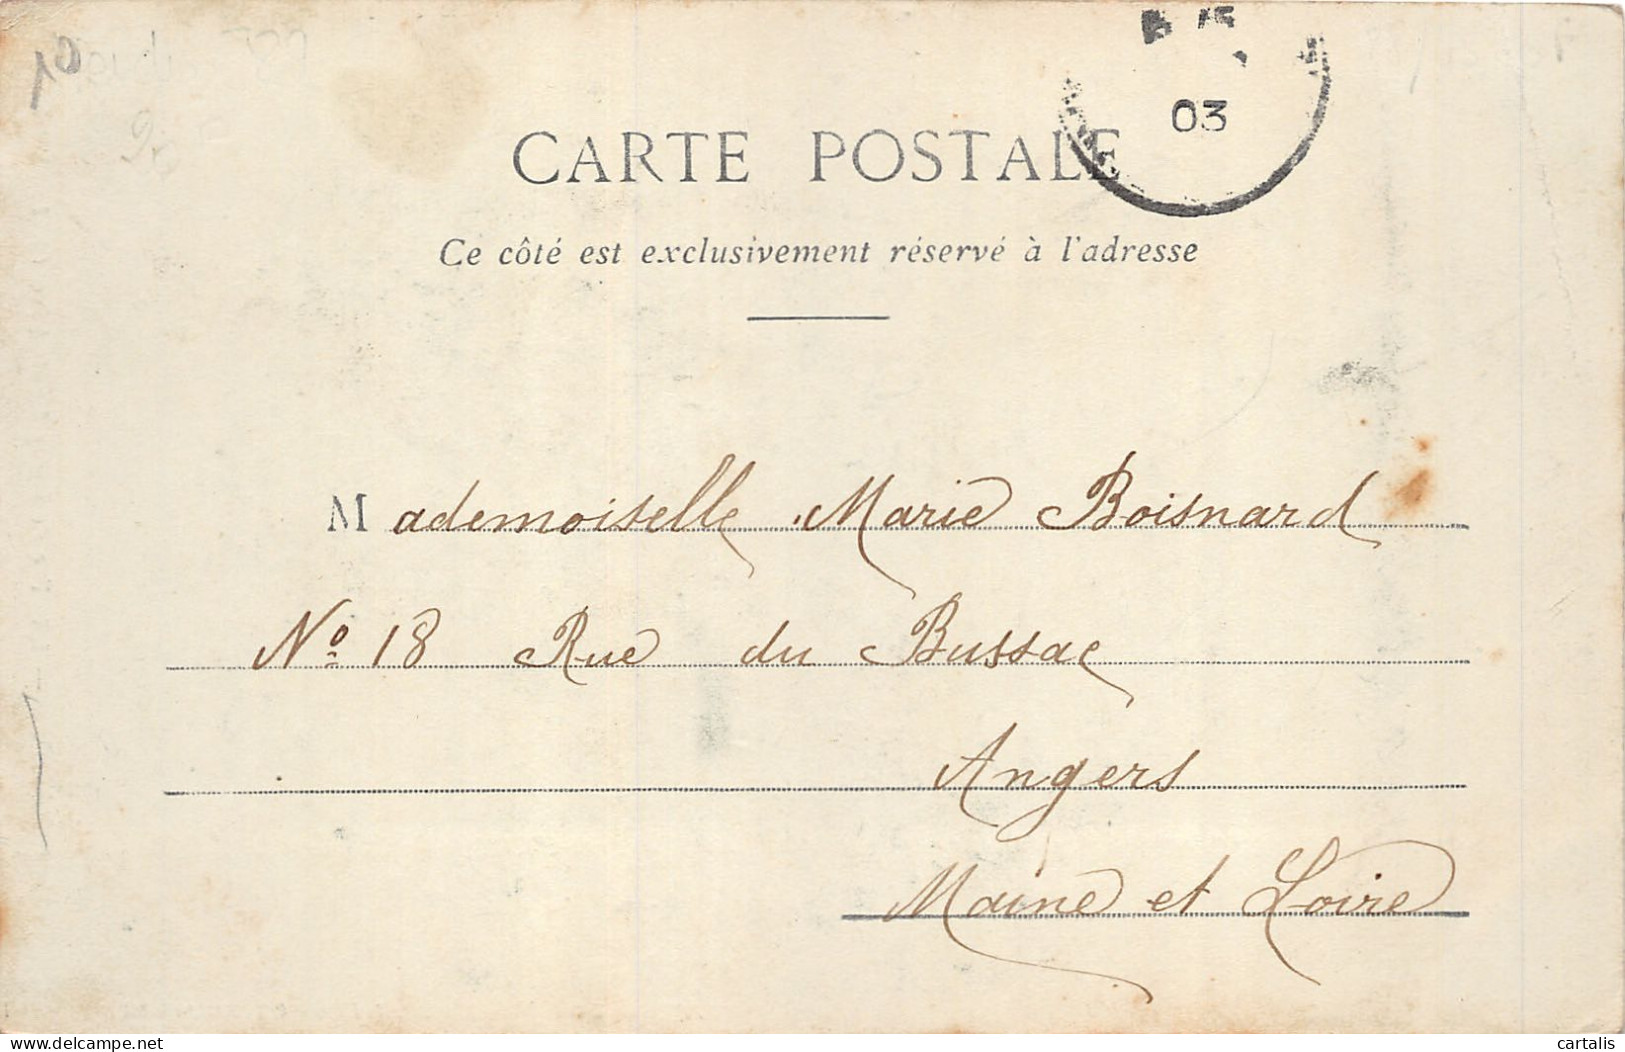 03
CARTE POSTALE
Ce côté est exclusivement réservé à l'adresse
Mademoiselle Marie Boisnard
Nº 18 Rue du Bussac
Angers
Maine et Loire
delcampe.net
cartalis